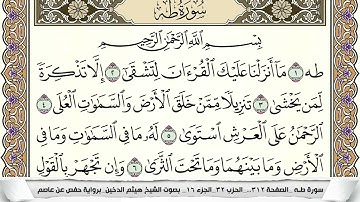 سورة طه
بِسْمِ اللَّهِ الرَّحْمَٰنِ الرَّحِيمِ
طه ١ مَا أَنزَلْنَا عَلَيْكَ الْقُرْءَانَ لِتَشْقَىٰ ٢ إِلَّا تَذْكِرَةً
لِّمَن يَخْشَىٰ ٣ تَنزِيلًا مِّمَّنْ خَلَقَ الْأَرْضَ وَالسَّمَٰوَٰتِ الْعُلَى ٤
الرَّحْمَٰنُ عَلَى الْعَرْشِ اسْتَوَىٰ ٥ لَهُ مَا فِي السَّمَٰوَٰتِ وَمَا فِي
الْأَرْضِ وَمَا بَيْنَهُمَا وَمَا تَحْتَ الثَّرَىٰ ٦ وَإِن تَجْهَرْ بِالْقَوْلِ
سورة طـه _الصفحة ٣١٢_ الحزب ٣٢_الجزء ١٦_ بصوت الشيخ هيثم الدخين_برواية حفص عن عاصم